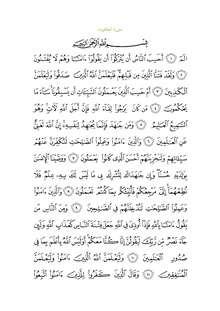 سورة العنكبوت
بِسْمِ اللَّهِ الرَّحْمَٰنِ الرَّحِيمِ
الٓمٓ ١ أَحَسِبَ النَّاسُ أَن يُتْرَكُوا أَن يَقُولُوا ءَامَنَّا وَهُمْ لَا يُفْتَنُونَ
٢ وَلَقَدْ فَتَنَّا الَّذِينَ مِن قَبْلِهِمْ فَلَيَعْلَمَنَّ اللَّهُ الَّذِينَ صَدَقُوا وَلَيَعْلَمَنَّ
الْكَٰذِبِينَ ٣ أَمْ حَسِبَ الَّذِينَ يَعْمَلُونَ السَّيِّـَٔاتِ أَن يَسْبِقُونَا سَاءَ مَا
يَحْكُمُونَ ٤ مَن كَانَ يَرْجُوا لِقَاءَ اللَّهِ فَإِنَّ أَجَلَ اللَّهِ لَـَٔاتٍ وَهُوَ
السَّمِيعُ الْعَلِيمُ ٥ وَمَن جَٰهَدَ فَإِنَّمَا يُجَٰهِدُ لِنَفْسِهِ إِنَّ اللَّهَ لَغَنِيٌّ
عَنِ الْعَٰلَمِينَ ٦ وَالَّذِينَ ءَامَنُوا وَعَمِلُوا الصَّٰلِحَٰتِ لَنُكَفِّرَنَّ عَنْهُمْ
سَيِّـَٔاتِهِمْ وَلَنَجْزِيَنَّهُمْ أَحْسَنَ الَّذِي كَانُوا يَعْمَلُونَ ٧ وَوَصَّيْنَا الْإِنسَٰنَ
بِوَٰلِدَيْهِ حُسْنًا وَإِن جَٰهَدَاكَ لِتُشْرِكَ بِي مَا لَيْسَ لَكَ بِهِ عِلْمٌ فَلَا
تُطِعْهُمَا إِلَيَّ مَرْجِعُكُمْ فَأُنَبِّئُكُم بِمَا كُنتُمْ تَعْمَلُونَ ٨ وَالَّذِينَ ءَامَنُوا
وَعَمِلُوا الصَّٰلِحَٰتِ لَنُدْخِلَنَّهُمْ فِي الصَّٰلِحِينَ ٩ وَمِنَ النَّاسِ مَن
يَقُولُ ءَامَنَّا بِاللَّهِ فَإِذَا أُوذِيَ فِي اللَّهِ جَعَلَ فِتْنَةَ النَّاسِ كَعَذَابِ اللَّهِ وَلَئِن
جَاءَ نَصْرٌ مِّن رَّبِّكَ لَيَقُولُنَّ إِنَّا كُنَّا مَعَكُمْ أَوَلَيْسَ اللَّهُ بِأَعْلَمَ بِمَا فِي
صُدُورِ الْعَٰلَمِينَ ١٠ وَلَيَعْلَمَنَّ اللَّهُ الَّذِينَ ءَامَنُوا وَلَيَعْلَمَنَّ
الْمُنَٰفِقِينَ ١١ وَقَالَ الَّذِينَ كَفَرُوا لِلَّذِينَ ءَامَنُوا اتَّبِعُوا